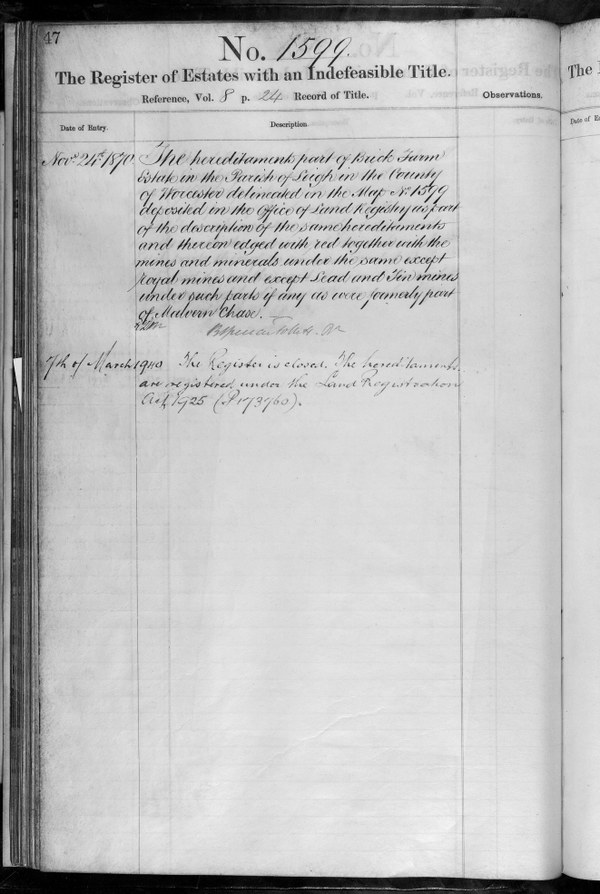 47
No. 1599.
The Register of Estates with an Indefeasible Title.
Reference, Vol. 8 p. 24 Record of Title.
Observations.
Date of Entry.
Description.
Novr 24th 1870
The hereditaments part of Brick Farm
Estate in the Parish of Leigh in the County
of Worcester delineated in the Map No 1599
deposited in the Office of Land Registry as part
of the description of the same hereditaments
and thereon edged with red together with the
mines and minerals under the same except
Royal mines and except Lead and Tin mines
under such parts if any as were formerly part
of Malvern Chase.
7th of March 1940
The Register is closed. The hereditaments
are registered under the Land Registration
Act, 1925 (P173760).
The
Date of